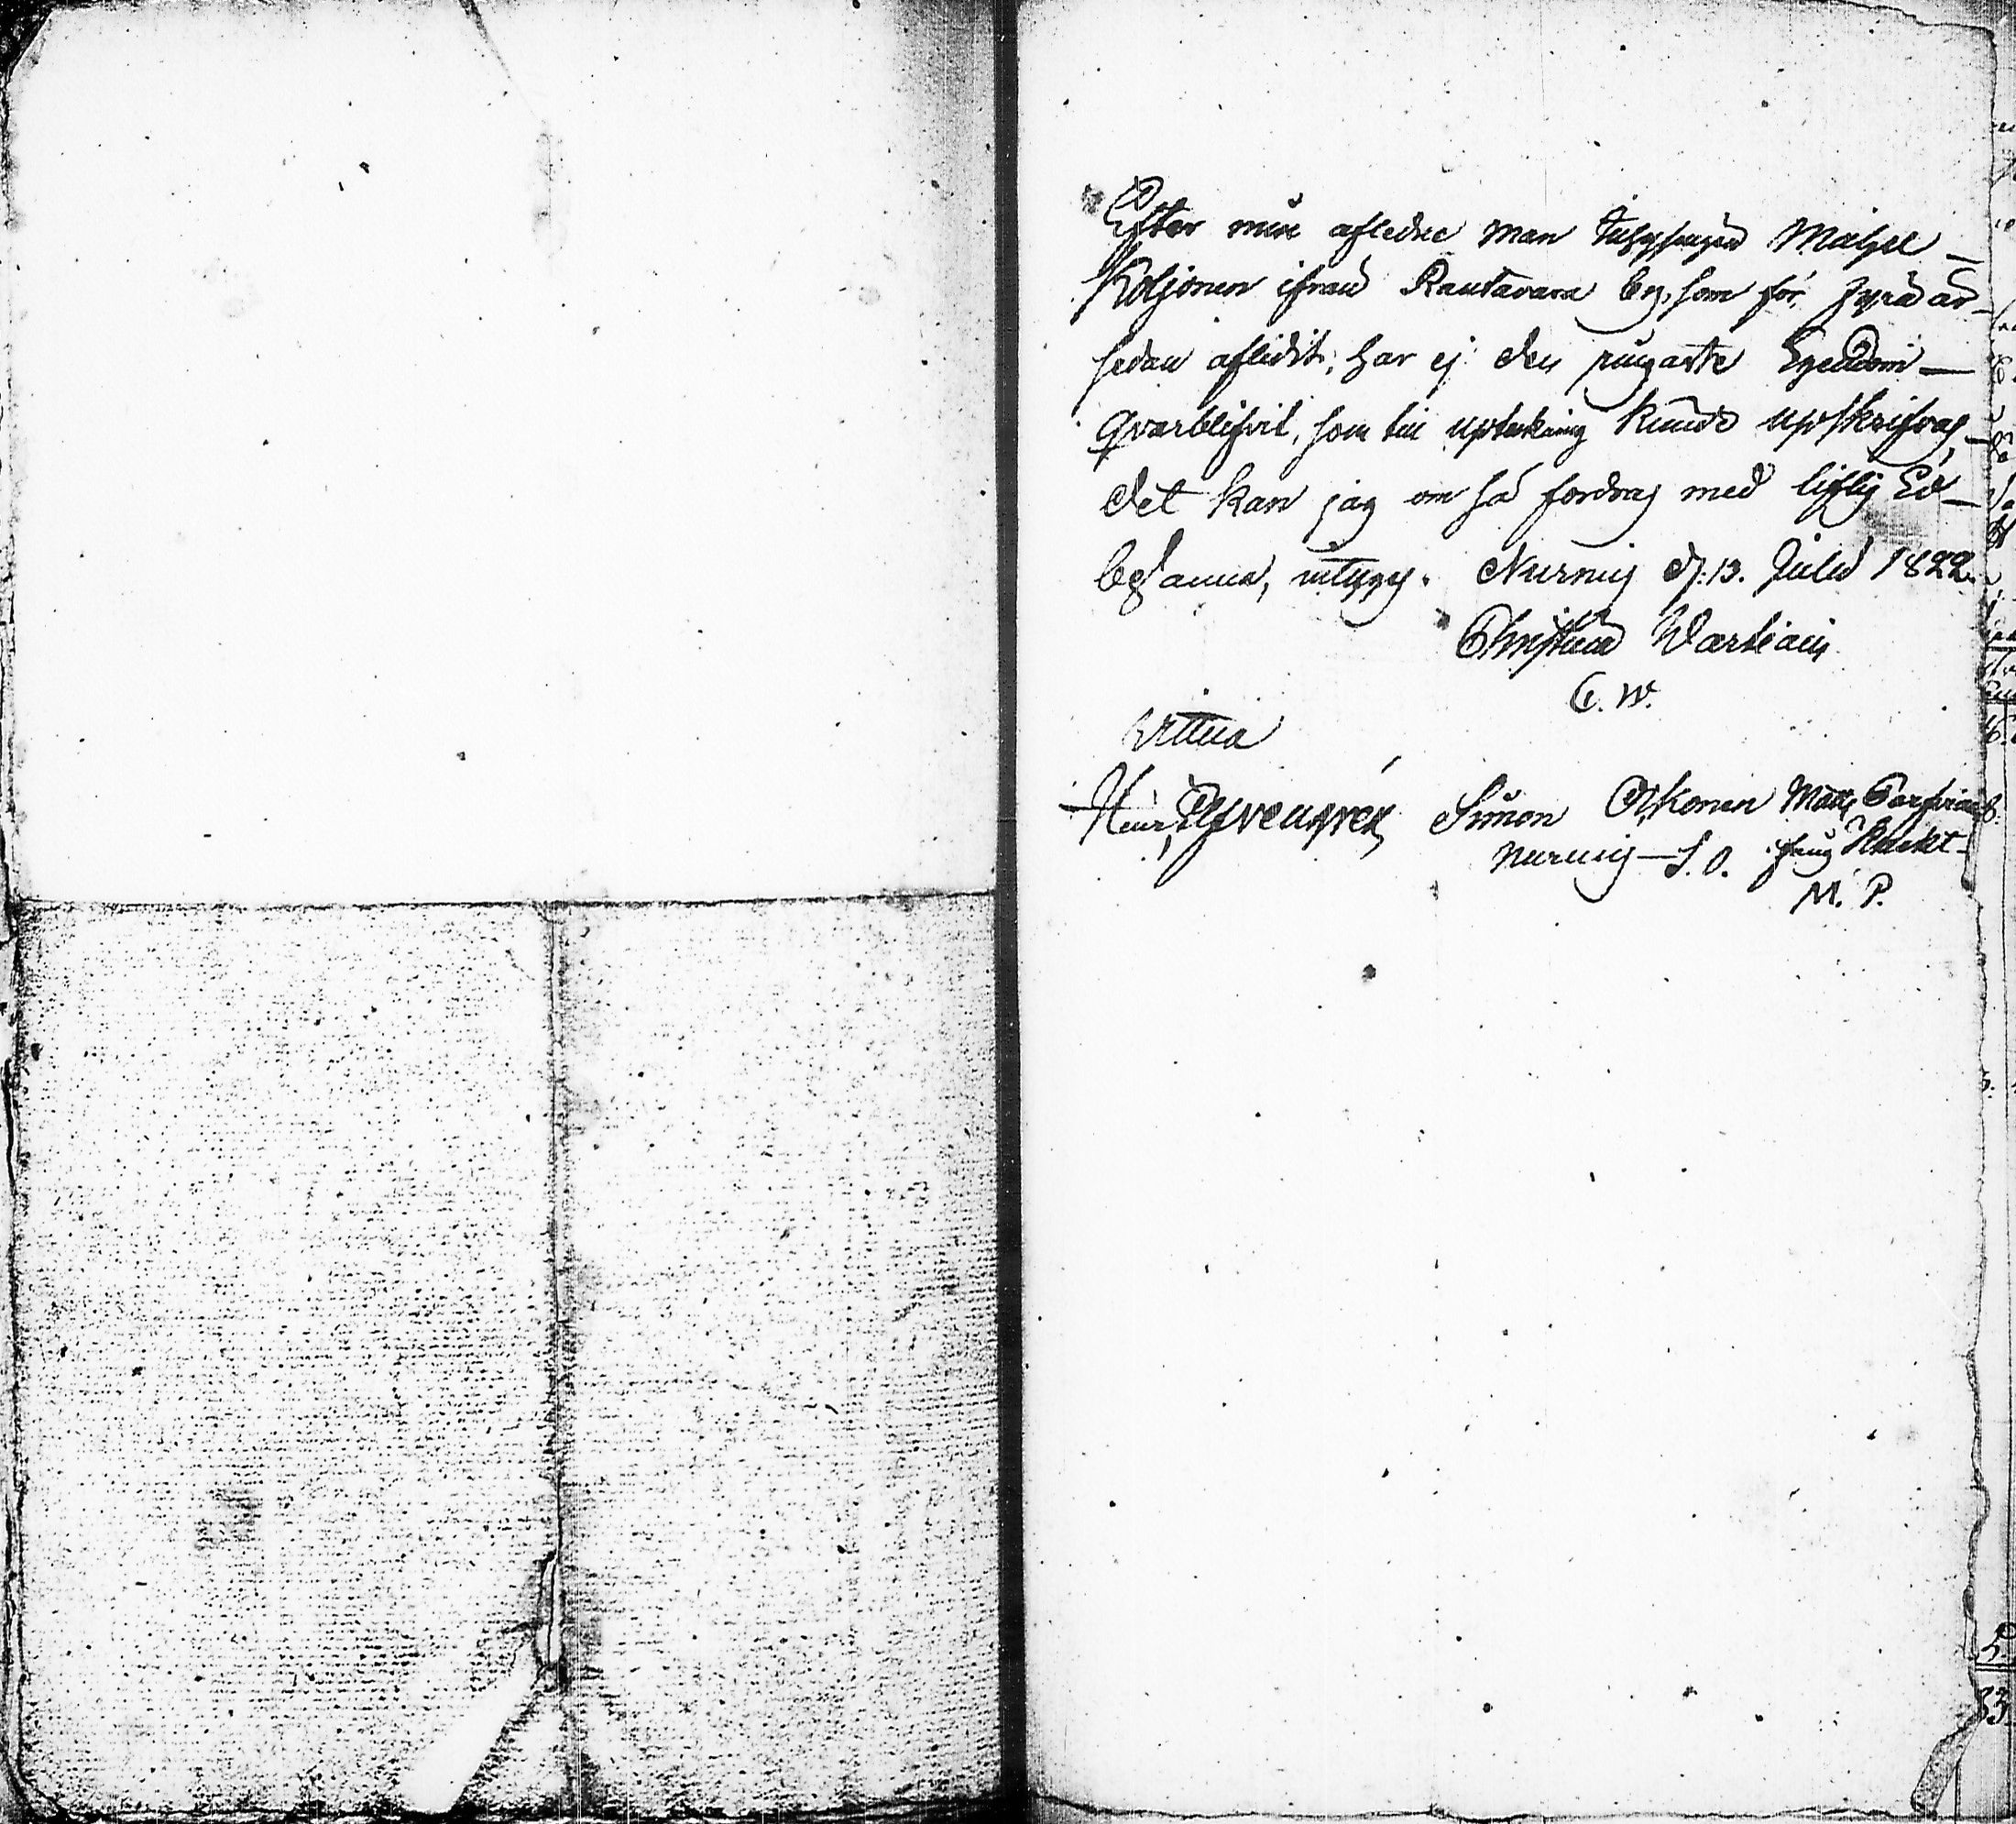 Efter min afledne man Inhysingen Michel
Koljonen ifrån Rautavara by, som för fyra år
sedan aflidit, har ej den ringaste Egendom
qvarblifvit, som till upteckning kunde upskrifvas,
det kan jag om så fordras med liflig Ed
besanna, intygas. Nurmis d: 13. Julii 1822.
Christina Vartiain
C. W.
Vittna
Henr: Elfvengren, Simon Oskonen Matts Parviain
Nurmis S. O.
M. P.